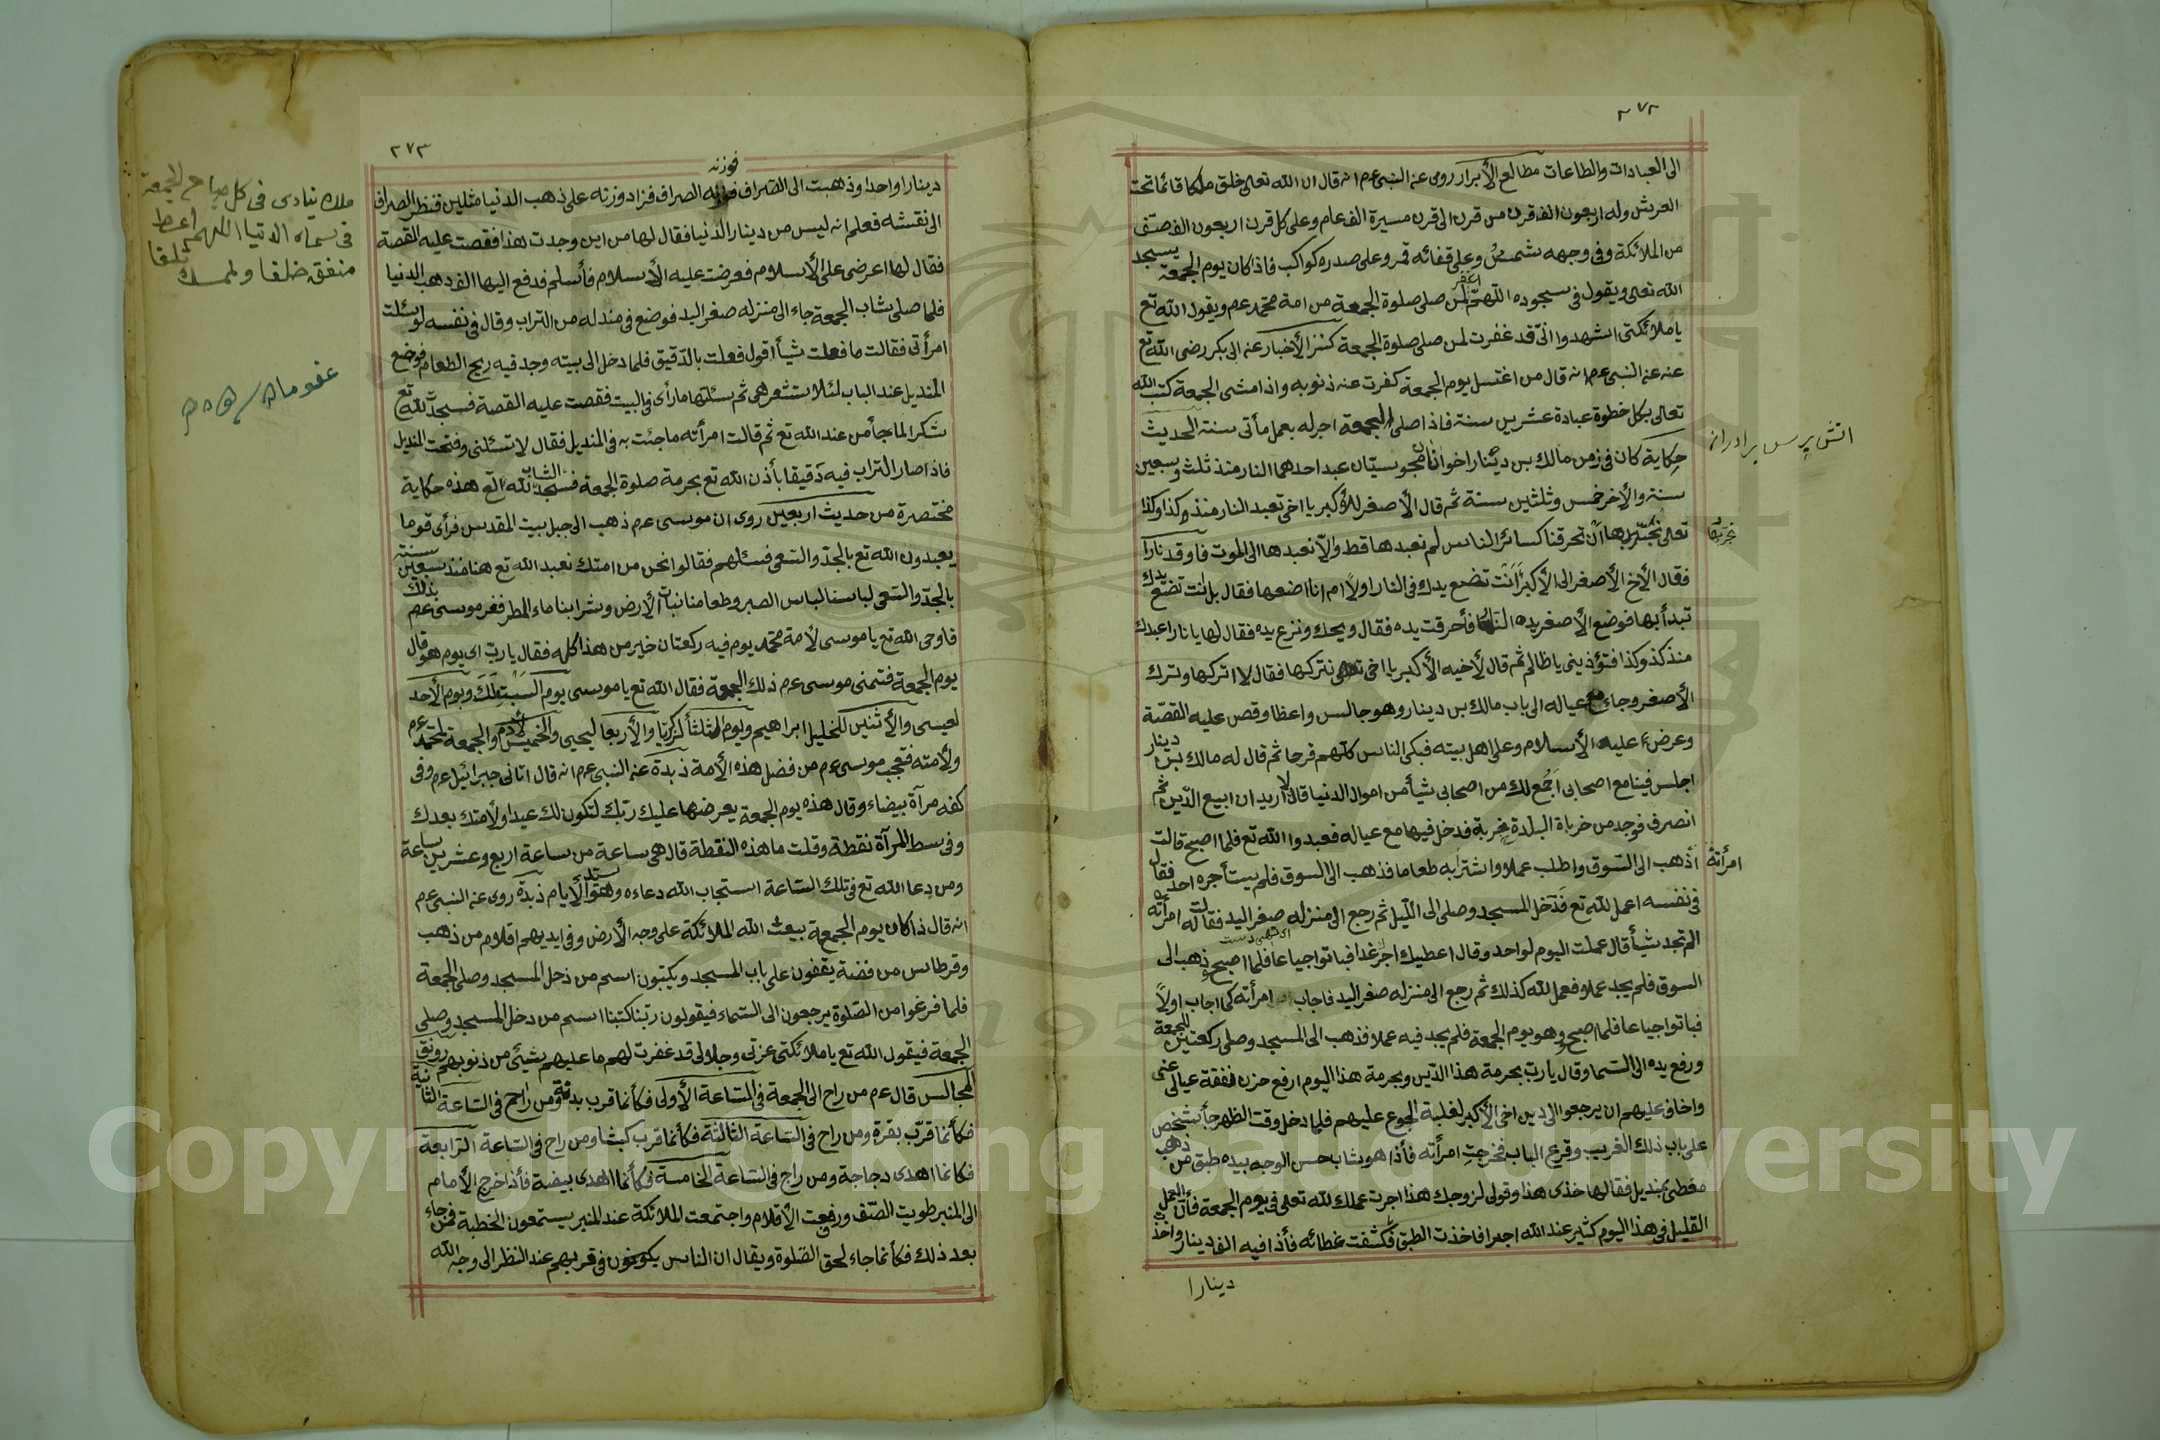 ٢٧٢
الى العبادات والطاعات مطالع الأبرار روى عنه النبى عم انه قال ان الله تعالى خلق ملكا قائما تحت
العرش وله اربعون الف قرن من قرن الى قرن مسيرة الف عام وعلى كل قرن اربعون الف صف
من الملائكة وفى وجهه شمس وعلى قفائه قمر وعلى صدره كواكب فاذا كان يوم الجمعة يسجد
الله تعالى ويقول فى سجوده اللهم اغفر لمن صلى صلوة الجمعة من امة محمد عم ويقول الله تع
يا ملائكتى اشهدوا انى قد غفرت لمن صلى صلوة الجمعة كنز الأخبار عنه ابى بكر رضى الله تع
عنه عنه النبى عم انه قال من اغتسل يوم الجمعة كفرت عنه ذنوبه واذا مشى الجمعة كتب الله
تعالى بكل خطوة عبادة عشرين سنة فاذا صلى الجمعة اجر له بعمل مأتى سنة الحديث
حكاية كان فى زمن مالك بن دينار اخوان مجوسيان عبد احدهما النار منذ ثلث وسبعين
اتش پرس برادرانه
سنة والأخر خمس وثلثين سنة ثم قال الأصغر للأكبر يا اخى تعبد النار منذ كذا وكذا
تعالى نجربها ان تحرقنا كسائر الناس لم نعبدها قط والا نعبدها الى الموت فاوقد نارا
نجربها
فقال الأخ الأصغر الى الأكبر أانت تضع يدك فى النار اولا ام انا اضعها فقال بل انت تضع يدك
تبدأ بها فوضع الأصغر يده النار فأحرقت يده فقال ويحك ونزع يده فقال لها يا نار اعبدك
منذ كذا وكذا فتؤذينى يا ظالم ثم قال لأخيه الأكبر يا اخى نتركها فقال لا اتركها وترك
الأصغر وجاء مع عياله الى باب مالك بن دينار وهو جالس واعظا وقص عليه القصة
وعرض عليه الأسلام وعلى اهل بيته فبكى الناس كلهم فرحا ثم قال له مالك بن دينار
اجلس فينا مع اصحابى اجمع لك من اصحابى شيأ من اموال الدنيا قال لا اريد ان ابيع الدين ثم
انصرف فوجد من خرباة البلدة خربة فدخل فيها مع عياله فعبدوا الله تع فلما اصبح قالت
امرأته
أذهب الى السوق واطلب عملا واشتر به طعاما فذهب الى السوق فلم يستأجره احد فقال
فى نفسه اعمل لله تع فدخل المسجد وصلى الى الليل ثم رجع الى منزله صفر اليد فقالت له امرأته
الم تجد شيأ قال عملت اليوم لواحد وقال اعطيك اجرك غدا فباتوا جياعا فلما اصبح ذهب الى
السوق فلم يجد عملا وفعل لله كذلك ثم رجع الى منزله صفر اليد فاجاب امرأته كما اجاب اولا
فباتوا جياعا فلما اصبح وهو يوم الجمعة فلم يجد فيه عملا فذهب الى المسجد وصلى ركعتين للجمعة
ورفع يده الى السما وقال يا رب بحرمة هذا الدين وبحرمة هذا اليوم ارفع حزن نفقة عيالى عنى
واخاف عليهم ان يرجعوا الى دين اخى الأكبر لغلبة الجوع عليهم فلما دخل وقت الظهر جأ شخص
على باب ذلك الغريب وقرع الباب فخرجت امرأته فأذا هو بشاب حسن الوجه بيده طبق من ذهب
مغطى بمنديل فقال لها خذى هذا وقولى لزوجك هذا اجرت عملك لله تعالى فى يوم الجمعة فأن العمل
القليل فى هذا اليوم كثير عند الله اجرا فاخذت الطبق فكشفت غطائه فأذا فيه الف دينار واخذت
دينارا
٢٧٣
فوزنه
دينارا واحدا وذهبت الى الصراف فوزنه الصراف فزاد وزنه على ذهب الدنيا مثلين فنظر الصراف
الى نقشه فعلم انه ليس من دينار الدنيا فقال لها من اين وجدت هذا فقصت عليه القصة
فقال لها اعرضى على الأسلام فعرضت عليه الأسلام فأسلم فدفع اليها الف ذهب الدنيا
فلما صلى شاب الجمعة جاء الى منزله صفر اليد فوضع فى منديله من التراب وقال فى نفسه لو سئلت
امرأتى فقالت ما فعلت شيأ اقول فعلت بالدقيق فلما دخل الى بيته وجد فيه ريح الطعام فوضع
المنديل عند الباب لئلا تشعر هى ثم سئلها ما رأى فى البيت فقصت عليه القصة فسجد لله تع
شكرا لما جأ من عند الله تع ثم قالت امرأته ما جئت به فى المنديل فقال لا تسئلنى وفتحت المنديل
فاذا صار التراب فيه دقيقا بأذن الله تع بحرمة صلوة الجمعة فسجد الشاب لله تع هذه حكاية
مختصرة من حديث اربعين روى ان موسى عم ذهب الى جبل بيت المقدس فرأى قوما
يعبدون الله تع بالجد والسعى فسئلهم فقالوا نحن من امتك نعبد الله تع هنا منذ سبعين سنة
بالجد والسعى لباسنا لباس الصبر وطعامنا نبات الأرض وشرابنا ماء المطر ففر موسى عم بذلك
فاوحى الله تع يا موسى لأمة محمد يوم فيه ركعتان خير من هذا كله فقال يا رب اى يوم هو قال
يوم الجمعة فتمنى موسى عم ذلك الجمعة فقال الله تع يا موسى يوم السبت لك ويوم الأحد
لعيسى والأثنين للخليل ابراهيم ويوم الثلثأ لزكريا والأربعا ليحيى والخميس لأدم والجمعة لمحمد عم
ولأمته فتعجب موسى عم من فضل هذه الأمة ذبدة عنه النبى عم انه قال اتانى جبرائيل عم وفى
كفه مرآة بيضاء وقال هذه يوم الجمعة يعرضها عليك ربك لتكون لك عيدا ولأمتك بعدك
وفى سط المرآة نقطة وقلت ما هذه النقطة قال هى ساعة من ساعة اربع وعشرين ساعة
ومن دعا الله تع فى تلك الساعة استجاب الله دعاءه وهو سيد الأيام ذبدة روى عنه النبى عم
انه قال ذا كان يوم الجمعة يبعث الله الملائكة على وجه الأرض وفى ايديهم اقلام من ذهب
وقرطاس من فضة يقفون على باب المسجد ويكتبون اسم من دخل المسجد وصلى الجمعة
فلما فرغوا من الصلوة يرجعون الى السماء فيقولون ربنا كتبنا اسم من دخل المسجد وصلى
الجمعة فيقول الله تع يا ملائكتى عزتى وجلالى قد غفرت لهم ما عليهم شيئى من ذنوبهم رونق
المجالس قال عم من راح الى الجمعة فى الساعة الأولى فكأنما قرب بدنة ومن راح فى الساعة الثانية
فكأنما قرب بقرة ومن راح فى الساعة الثالثة فكأنما قرب كبشا ومن راح فى الساعة الرابعة
فكانما اهدى دجاجة ومن راح فى الساعة الخامسة فكأنما اهدى بيضة فأذا خرج الأمام
الى المنبر طويت الصف ورفعت الأقلام واجتمعت الملائكة عند المنبر يستمعون الخطبة فمن جاء
بعد ذلك فكأنما جاء لحق الصلوة ويقال ان الناس يكونون فى قربهم عند النظر الى وجه الله
ملك ينادى فى كل صباح الجمعة
فى سماء الدنيا اللهم اعط
منفق خلفا ولممسك تلفا
Copyright © King Saud University